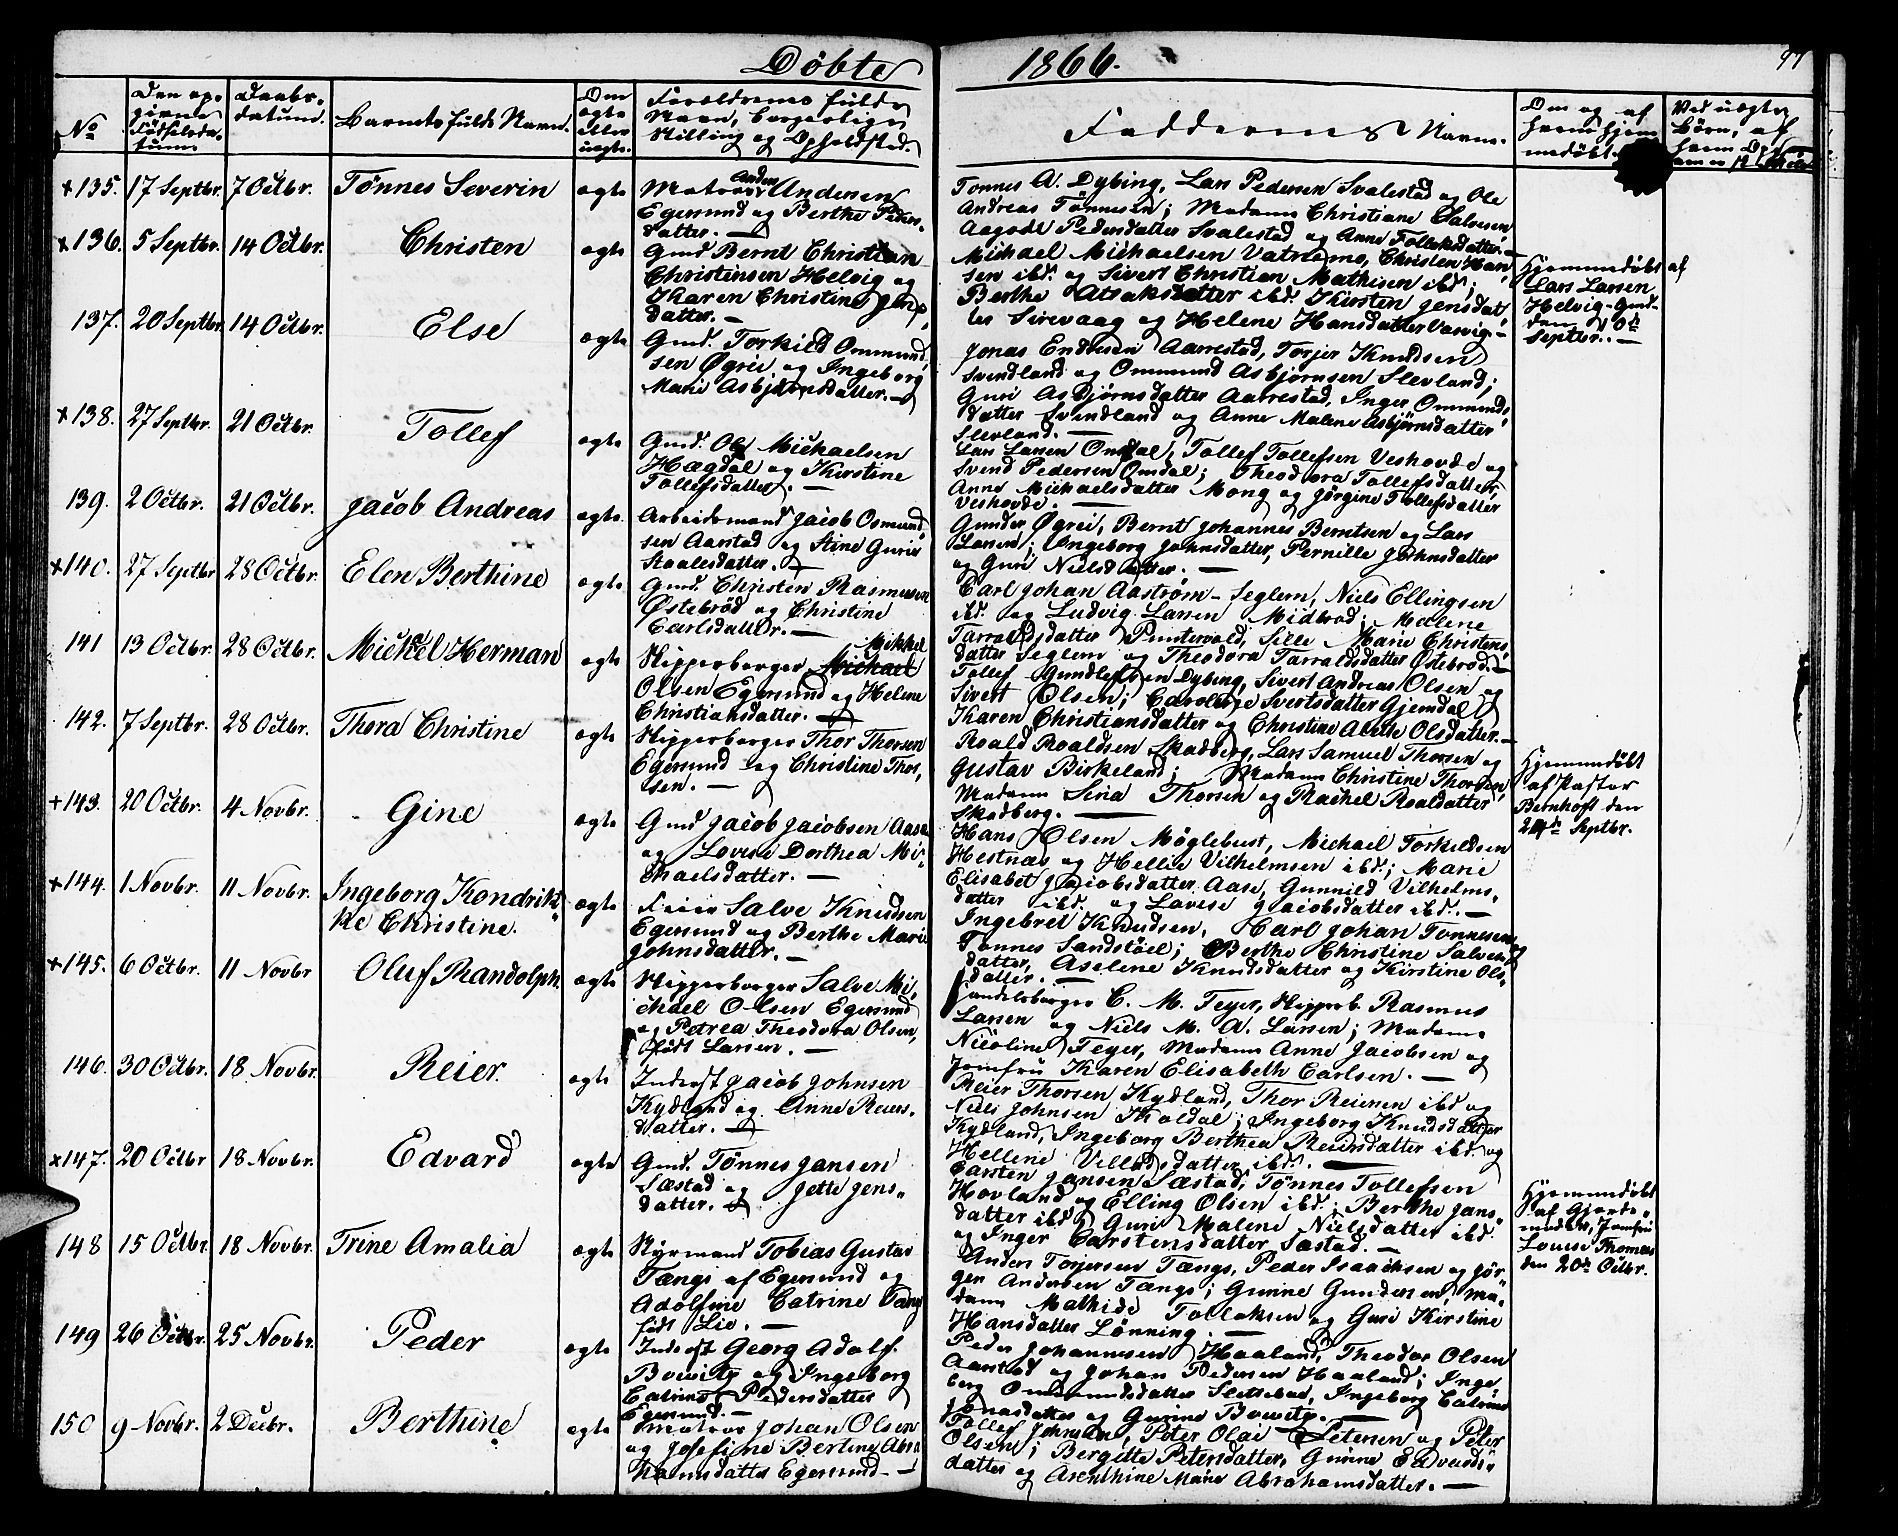 Døbte 1866. 97
No
Den op-
givne
Fødselsda-
tum
Daabs-
datum.
Barnets fulde Navn.
Om
ægte
eller
uægte.
Forældrenes fulde
Navn, borgerlige
Stilling og Opholdsted.
Faddernes Navne.
Om og af
hvem hjem-
medøbt.
Ved uægte
Børn, af
hvem
+135. 17 Septbr. 7 Octbr. Tønnes Severin ægte
Matros Anders Andersen
Egersund og Berthe Peders-
datter. —
Tonnes A. Dybing, Lars Pedersen Svalestad og Ole
Andreas Tønnesen; Madame Christiane Salvesen,
Aagodt Pedersdatter Svalestad og Anne Tollaksdatter. —
x136. 5 Septbr. 14 Octbr. Christen ægte
Gmd Bernt Christian
Christensen Helvig og
Karen Christine Jens-
datter. —
Michael Michaelsen Vatnemo, Christen Han-
sen ibd. og Sivert Christian Mathisen ibd.;
Berthe Aslaksdatter ibd. Kirsten Jensdat-
ter Sirevaag og Helene Hansdatter Vasvig. —
Hjemmedøbt af
Lars Larsen
Helvig-Gmd-
den 10de
Septbr. —
137. 20 Septbr. 14 Octbr. Else ægte
Gmd. Torkild Ommund-
sen Øgrei og Ingeborg
Marie Asbjørnsdatter. —
Jonas Endresen Aarrestad, Torjer Knudsen
Svendland og Ommund Asbjørnsen Slevland;
Guri Asbjørnsdatter Aarrestad, Inger Ommunds-
datter Svendland og Anne Malene Asbjørnsdatter
Slevland. —
x138. 27 Septbr. 21 Octbr. Tollef ægte
Gmd. Ole Michaelsen
Hægdal og Kirstine
Tollefsdatter. —
Lars Larsen Omdal, Tollef Tollefsen Veshovde og
Svend Pedersen Omdal; Theodora Tollefsdatter,
Anne Michaelsdatter Mong og Jørgine Tollefsdatter
Veshovde. —
139. 2 Octbr. 21 Octbr. Jacob Andreas ægte
Arbeidsmand Jacob Osmund-
sen Aarstad og Stine Gurie
Staalesdatter. —
Gunder Øgrei, Bernt Johannes Berntsen og Lars
Larsen; Ingeborg Johnsdatter, Pernille Johnsdatter
og Guri Nielsdatter. —
+140. 27 Septbr 28 Octbr. Elen Berthine ægte
Gmd. Christen Rasmussen
Østebrød og Christine
Carlsdatter. —
Carl Johan Aastrøm - Seglem, Niels Ellingsen
ibd. og Ludvig Larsen Midbrød; Malene
Tarraldsdatter Puntervold, Sille Marie Christens-
datter Seglem og Theodora Tarraldsdatter Østebrød. —
141 13 Octbr. 28 Octbr. Michel Herman ægte
Skipperborger Michael Mikkel
Olsen Egersund og Helene
Christiansdatter. —
Tollef Gundlefsen Dybing, Sivert Andreas Olsen og
Sivert Olsen; Caroline Svertsdatter Gjemdal,
Karen Christiansdatter og Christine Aarthe Olsdatter. —
142. 7 Septbr. 28 Octbr. Thora Christine ægte
Skipperborger Thor Thorsen
Egersund og Christine Thor-
sen. —
Roald Roaldsen Skadberg, Lars Samuel Thorsen og
Gustav Birkeland; Madame Christine Thorsen,
Madame Siria Thorsen og Rachel Roaldatter
Skadberg. —
Hjemmedøbt
af Pastor
Bernhoft den
24de Septbr.
+143. 20 Octbr. 4 Novbr. Gine ægte
Gmd Jacob Jacobsen Aase
og Lovise Dorthea Mi-
chaelsdatter. —
Hans Olsen Møglebust, Michael Torkeldsen
Hestnæs og Hellie Vilhelmsen ibd.; Marie
Elisabet Jacobsdatter Aase, Gunnild Vilhelms-
datter ibd. og Lovise Jacobsdatter ibd. —
+144. 1 Novbr. 11 Novbr. Ingeborg Kondrik-
ke Christine. ægte
Feier Salve Knudsen
Egersund og Berthe Marie
Johnsdatter. —
Ingebret Knudsen, Carl Johan Tonnesen og
Tonnes Sandstøel; Berthe Christine Salves-
datter, Aselene Knudsdatter og Kirstine Ols-
datter. —
+145. 6 Octbr. 11 Novbr Oluf Randolph ægte
Skipperborger Salve Mi-
chael Olsen Egersund
og Petrea Theodora Olsen,
født Larsen. —
Handelsborger C. M. Feyer, Skipperb. Rasmus
Larsen og Niels M. A. Larsen; Madame
Nicoline Feyer, Madame Anne Jacobsen og
Jomfru Karen Elisabeth Carlsen. —
146. 30 Octbr. 18 Novbr. Reier. ægte
Inderst Jacob Johnsen
Kydland og Anne Reiers-
datter. —
Reier Thorsen Kydland, Thor Reiersen ibd og
Niels Johnsen Koldal; Ingeborg Knudsdatter
Kydland, Ingeborg Berthea Reiersdatter ibd. og
Hellene Villadsdatter ibd. —
x147. 20 Octbr 18 Novbr. Edvard ægte
Gmd. Tønnes Jansen
Sæstad og Jette Jens-
datter. —
Carsten Jansen Sæstad, Tønnes Tollefsen
Hovland og Elling Olsen ibd.; Berthe Jans-
datter ibd, Guri Malene Nielsdatter ibd.
og Inger Carstensdatter Sæstad. —
148 15 Octbr. 18 Novbr. Trine Amalia ægte
Styrmand Tobias Gustav
Tængs af Egersund og
Adolfine Catrine Tang
født Lie. —
Anders Torjersen Tængs, Peder Isaachsen og Jør-
gen Andersen Tængs; Gunne Gundersen, Ma-
dame Mathide Tollaksen og Guri Kirstine
Hansdatter Lønning. —
Hjemmedøbt
af Gjorde-
moder, Jomfru
Louise Thomsen
den 20de Octbr.
149 26 Octbr. 25 Novbr. Peder ægte
Inderst Georg Adolf
Bowitz og Ingeborg
Catrine Pedersdatter
Egersund. —
Peder Johannesen Haaland, Theodor Olsen
Aarstad og Johan Pedersen Haaland; Inge-
berg Ommundsdatter Slettebøe, Ingeborg Catrine
Jonasdatter og Gurine Bowitz. —
150 9 Novbr. 2 Decbr. Berthine ægte
Matros Johan Olsen
og Josefine Bertine Abra-
hamsdatter Egersund. —
Tollef Johnsen, Peter Olai Petersen og Peter
Olsen; Bergitte Petersdatter, Gurine Edvards-
datter og Arenthine Marie Abrahamsdatter. —